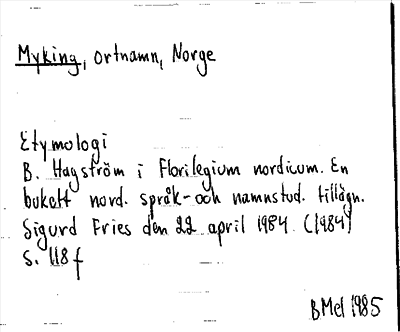 Myking, ortnamn, Norge
Etymologi
B. Hagström i Florilegium nordicum. En
bukett nord. språk- och namnstud. tillägn.
Sigurd Fries den 22 april 1984. (1984)
S. 118 f
BMel 1985